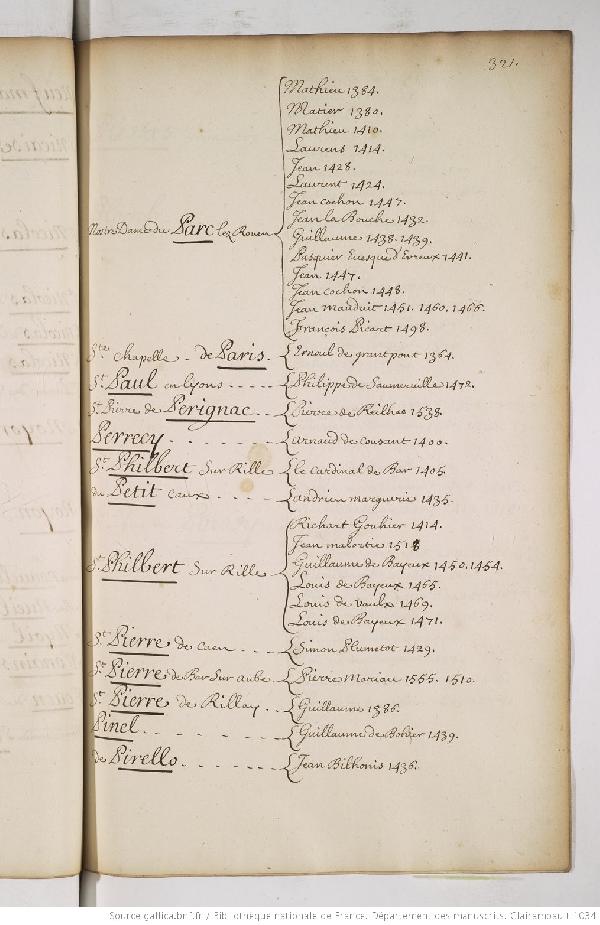 321.
Mathieu 1384.
Matier 1380.
Mathieu 1410.
Laurens 1414.
Jean 1428.
Laurent 1424.
Jean cochon 1447.
Jean la Bouche 1432.
Nostre Dame du Parc lez Rouen
Guillaume 1438. 1439.
Pasquier Evesque d'Evreux 1441.
Jean 1447.
Jean cochon 1448.
Jean mauduit 1451. 1460. 1466.
François Picart 1498.
Ste. Chapelle - de Paris. Ernoul de grant pont 1364.
St. Paul en lyons - - - - Philippe de 1472.
St. Pierre de Perignac - - Pierre de 1538
Perrecy - - - - - - - arnaud de cousant 1400.
St. Philbert Sur Rille le Cardinal de Bar 1405.
du Petit caux - - - - andrieu marguerie 1435.
Richart Gouhier 1414.
Jean malortie 1518
St. Philbert Sur Rille Guillaume de Bayeux 1450. 1454.
Louis de Bayeux 1465.
Louis de vaulx 1469.
Louis de Bayeux 1471.
St. Pierre de Caen - - Simon Plumetot 1429.
St. Pierre de Bar Sur aube - Pierre 1555. 1510.
St. Pierre de Rillay - - Guillaume 1386.
Pinel - - - - - - Guillaume de 1439.
de Pirello - - - - - - Jean Bilhonis 1436.
Source gallica.bnf.fr / Bibliothèque nationale de France. Département des manuscrits. Clairambault 1034